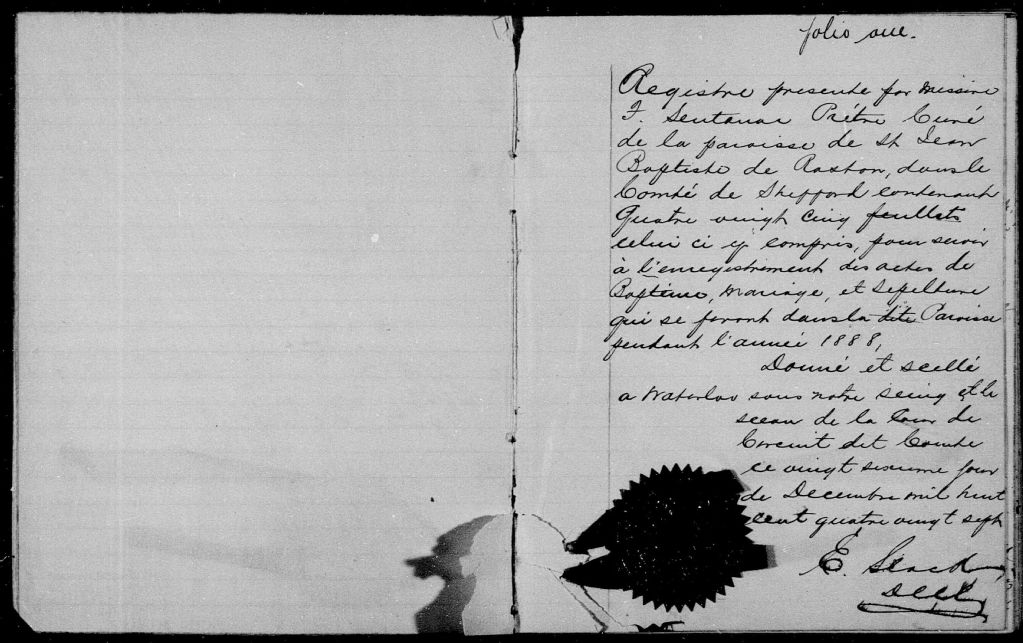 folio one.
Registre presente par Messire
F. Sentenac Prêtre Curé
de la paroisse de St Jean
Baptiste de Roxton, dans le
Comté de Shefford contenant
Quatre vingt cinq feuillets
celui ci y compris, pour servir
à l'enregistrement des actes de
Baptême, Mariage, et Sepulture
qui se feront dans la dite Paroisse
pendant l'année 1888,
Donné et scellé
a Waterloo sous notre seing et le
sceau de la Cour de
Circuit dit Comté
ce vingt sixieme jour
de Decembre mil huit
cent quatre vingt sept
E. Slack